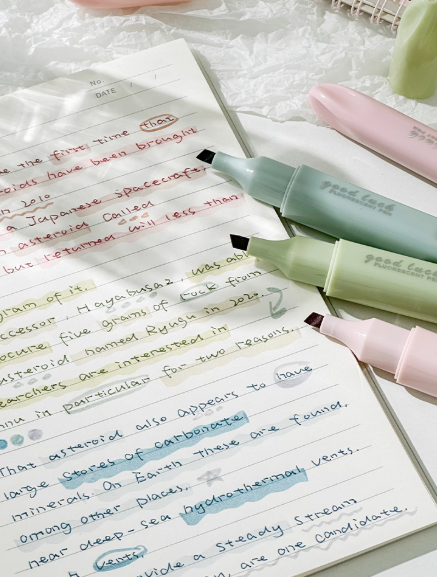 No.
DATE / /
e the first time that
oids have been brought
in 2010
a Japanese spacecraft
asteroid called
but returned will less than
gram of it.
ccessor, Hayabusa2, was ab
ocure five grams of rock from
asteroid named Ryugu in 2021
earchers are interested in
nnu in particular for two reasons.
That asteroid also appears to have
large stores of carbonate
minerals. On Earth These are found,
among other places,
near deep-sea hydrothermal vents.
vents
vide a steady stream
, are one candidate.
good luck
FLUORESCENT PEN
good luck
FLUORESCENT PEN